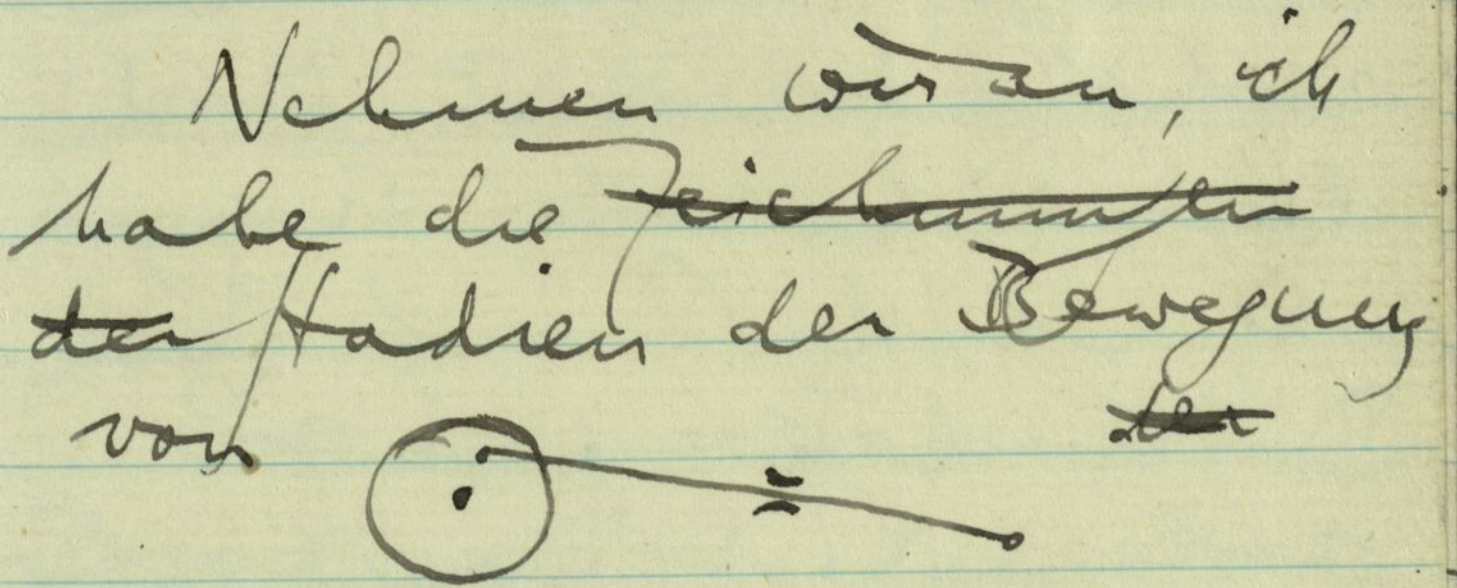 Nehmen wir an, ich
habe die Zeichnungen
der Stadien der Bewegung
von der